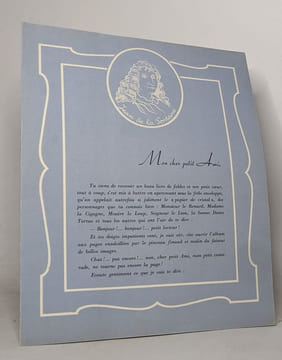 Jean de La Fontaine
Mon cher petit Ami,
Tu viens de recevoir un beau livre de fables et ton petit cœur,
tout à coup, s'est mis à battre en apercevant sous la jolie enveloppe,
qu'on appelait autrefois si joliment le « papier de cristal », des
personnages que tu connais bien : Monsieur le Renard, Madame
la Cigogne, Messire le Loup, Seigneur le Lion, la bonne Dame
Tortue et tous les autres qui ont l'air de te dire :
— Bonjour !... bonjour !... petit lecteur !
Et tes doigts impatients vont, je suis sûr, vite ouvrir l'album
aux pages ensoleillées par le pinceau finaud et malin du faiseur
de belles images.
Chut !... pas encore !... non, cher petit Ami, mon petit cama-
rade, ne tourne pas encore la page !
Ecoute gentiment ce que je vais te dire :